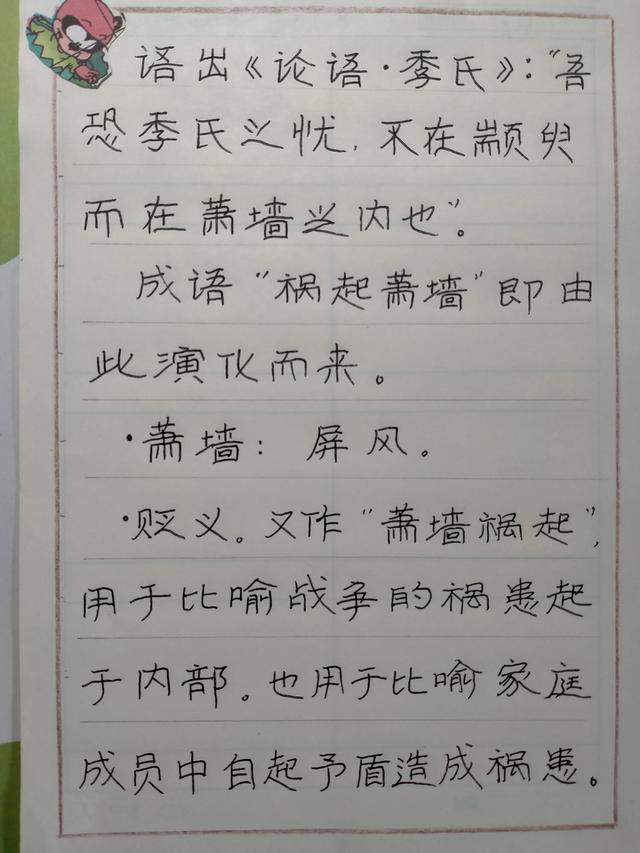 语出《论语·季氏》：“吾
恐季氏之忧，不在颛臾
而在萧墙之内也”。
成语“祸起萧墙”即由
此演化而来。
·萧墙：屏风。
·贬义。又作“萧墙祸起”，
用于比喻战争的祸患起
于内部。也用于比喻家庭
成员中自起矛盾造成祸患。